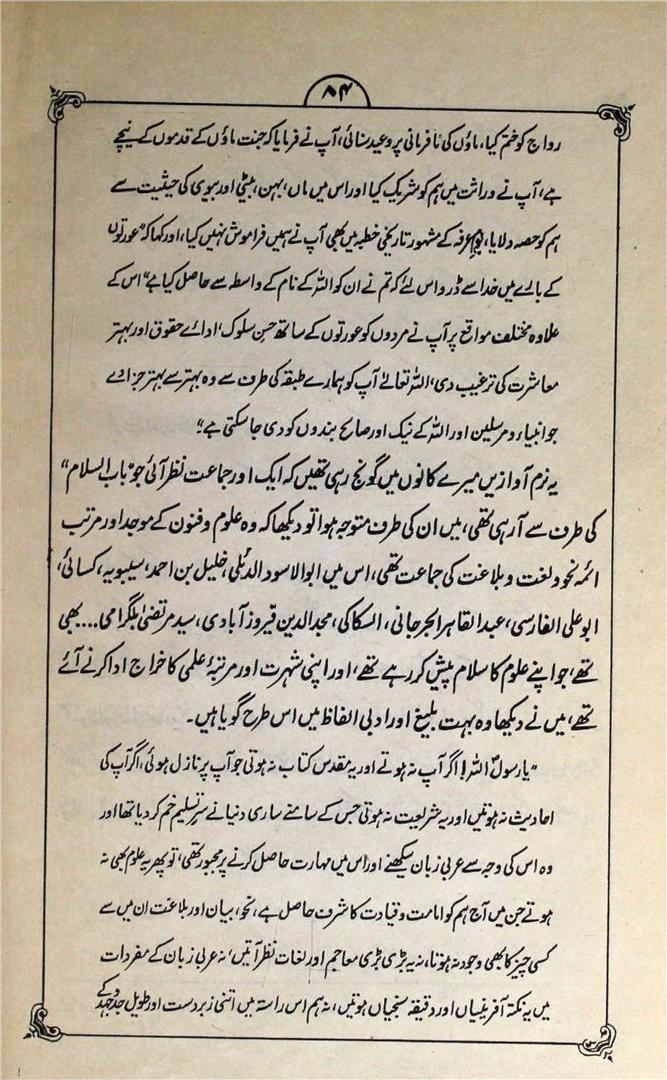 ۸۴
رواج کو ختم کیا، ماؤں کی نافرمانی پر وعید سنائی، آپ نے فرمایا کہ جنت ماؤں کے قدموں کے نیچے
ہے، آپ نے وراثت میں ہم کو شریک کیا اور اس میں ماں، بہن، بیٹی اور بیوی کی حیثیت سے
ہم کو حصہ دلایا، یوم عرفہ کے مشہور تاریخی خطبہ میں بھی آپ نے ہمیں فراموش نہیں کیا، اور کہا کہ "عورتوں
کے بارے میں خدا سے ڈرو اس لئے کہ تم نے ان کو اللہ کے نام کے واسطہ سے حاصل کیا ہے" اس کے
علاوہ مختلف مواقع پر آپ نے مردوں کو عورتوں کے ساتھ حسن سلوک، ادائے حقوق اور بہتر
معاشرت کی ترغیب دی، اللہ تعالےٰ آپ کو ہمارے طبقہ کی طرف سے وہ بہتر سے بہتر جزا دے
جو انبیاء و مرسلین اور اللہ کے نیک اور صالح بندوں کو دی جا سکتی ہے"
یہ نرم آوازیں میرے کانوں میں گونج رہی تھیں کہ ایک اور جماعت نظر آئی جو "باب السلام"
کی طرف سے آرہی تھی، میں ان کی طرف متوجہ ہوا تو دیکھا کہ وہ علوم و فنون کے موجد اور مرتب
ائمہ نحو و لغت و بلاغت کی جماعت تھی، اس میں ابوالاسود الدئلی، خلیل بن احمد، سیبویہ، کسائی،
ابو علی الفارسی، عبدالقاہر الجرجانی، السکاکی، مجد الدین فیروز آبادی، سید مرتضیٰ بلگرامی.... بھی
تھے، جو اپنے علوم کا سلام پیش کر رہے تھے، اور اپنی شہرت اور مرتبۂ علمی کا خراج ادا کرنے آئے
تھے، میں نے دیکھا وہ بہت بلیغ اور ادبی الفاظ میں اس طرح گویا ہیں۔
"یا رسول اللہ! اگر آپ نہ ہوتے اور یہ مقدس کتاب نہ ہوتی جو آپ پر نازل ہوئی، اگر آپ کی
احادیث نہ ہوتیں اور یہ شریعت نہ ہوتی جس کے سامنے ساری دنیا نے سر تسلیم خم کر دیا تھا اور
وہ اس کی وجہ سے عربی زبان سیکھنے اور اس میں مہارت حاصل کرنے پر مجبور تھی، تو پھر یہ علوم بھی نہ
ہوتے جن میں آج ہم کو امامت و قیادت کا شرف حاصل ہے، نحو، بیان اور بلاغت ان میں سے
کسی چیز کا بھی وجود نہ ہوتا، نہ یہ بڑی بڑی معاجم اور لغات نظر آتیں، نہ عربی زبان کے مفردات
میں یہ نکتہ آفرینیاں اور دقیقہ سنجیاں ہوتیں، نہ ہم اس راستہ میں اتنی زبردست اور طویل جدوجہد کے